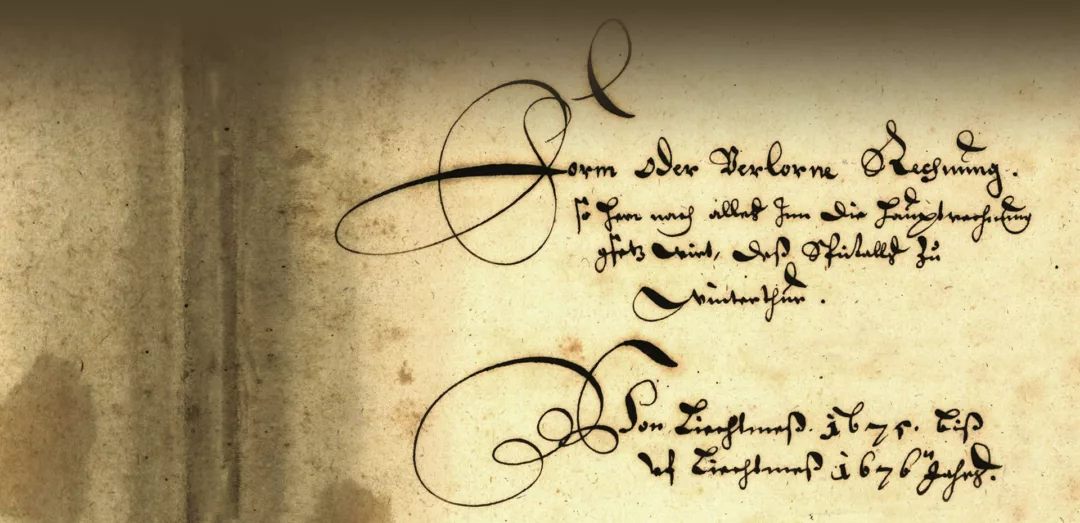 Form oder Verlorne Rechnung.
so hernach alles Inn die Hauptrechnung
gsetz wirt, deß Spitalls zu
Winterthur.
Von Liechtmeß. 1675. biß
uf Liechtmeß 1676 Jahrs.